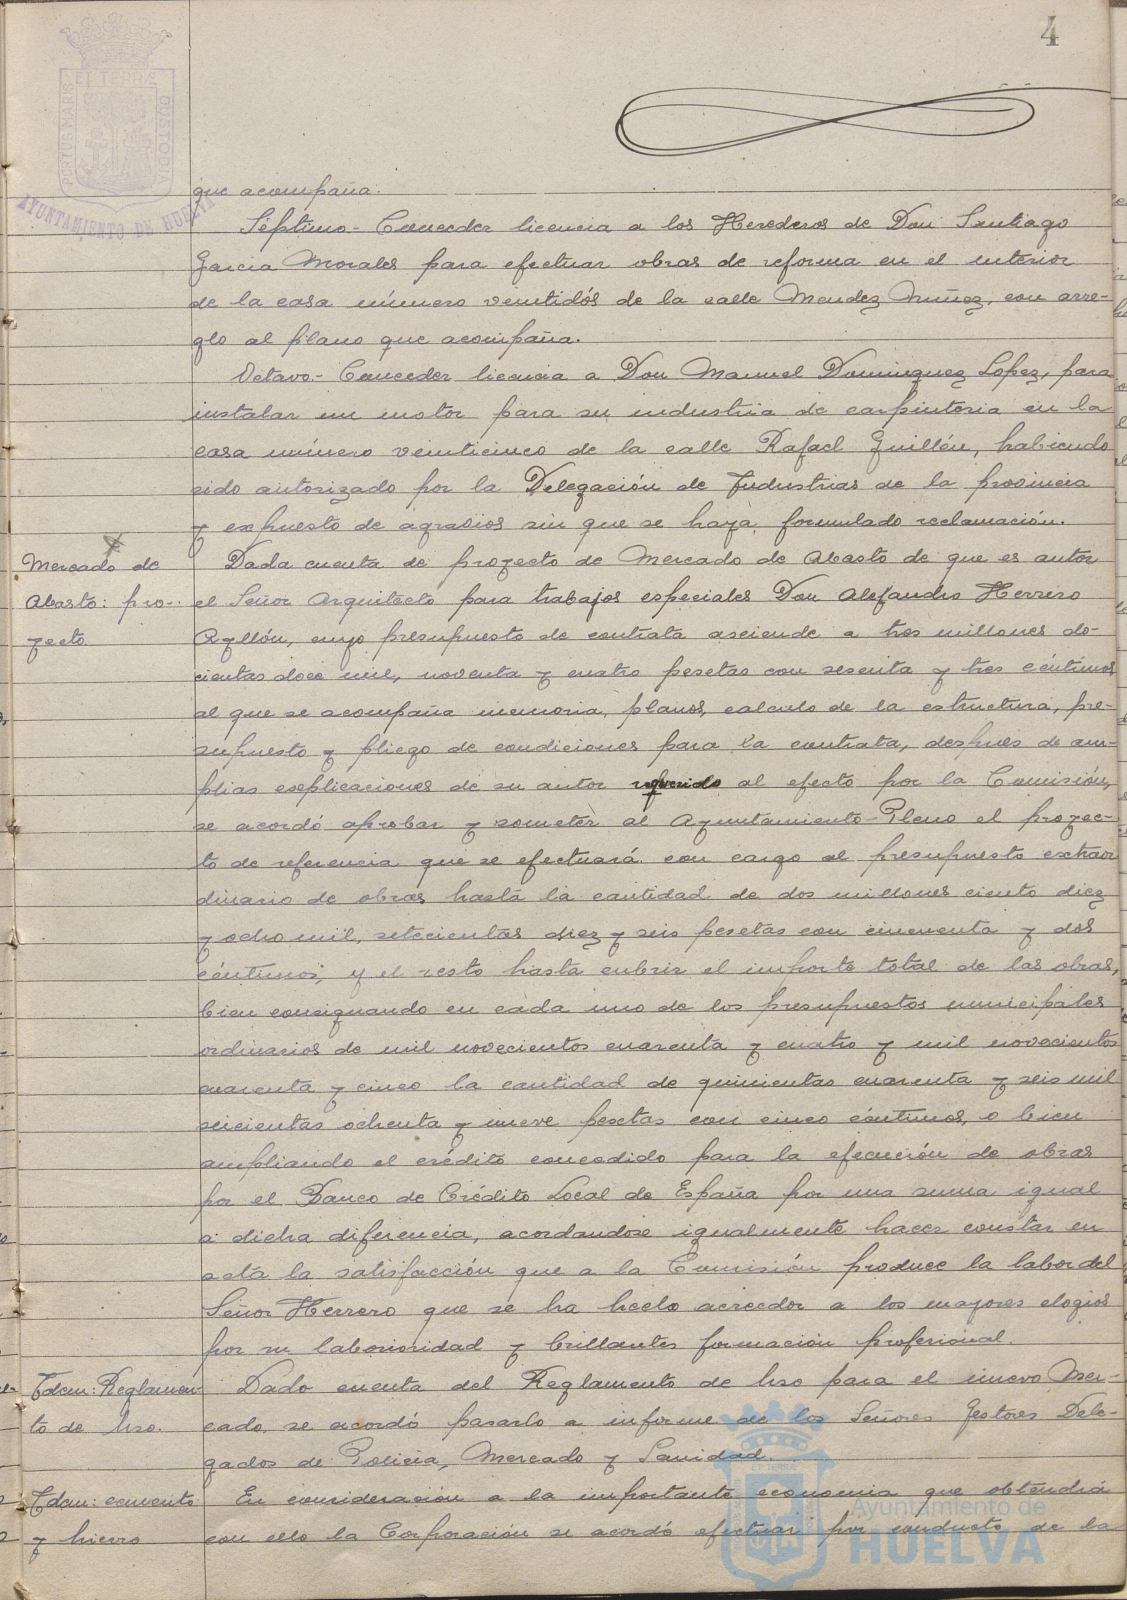 4
ET TERRÆ
PORTUS MARIS
CUSTODIA
AYUNTAMIENTO DE HUELVA
que acompaña.
Séptimo.- Conceder licencia a los Herederos de Don Santiago
Garcia Morales para efectuar obras de reforma en el interior
de la casa número veintidós de la calle Mendez Nuñez, con arre-
glo al plano que acompaña.
Octavo.- Conceder licencia a Don Manuel Dominguez Lopez, para
instalar un motor para su industria de carpinteria en la
casa número veinticinco de la calle Rafael Guillén, habiendo
sido autorizado por la Delegación de Industrias de la provincia
y expuesto de agravios sin que se haya formulado reclamación.
Mercado de
Abasto: pro-
yecto.
Dada cuenta de proyecto de Mercado de Abasto de que es autor
el Señor Arquitecto para trabajos especiales Don Alejandro Herrero
Ayllón, cuyo presupuesto de contrata asciende a tres millones do-
cientas doce mil, noventa y cuatro pesetas con sesenta y tres céntimos
al que se acompaña memoria, planos, calculo de la estructura, pre-
supuesto y pliego de condiciones para la contrata, despues de am-
plias explicaciones de su autor requerido al efecto por la Comisión,
se acordó aprobar y someter al Ayuntamiento-Pleno el proyec-
to de referencia que se efectuará con cargo al presupuesto extraor
dinario de obras hasta la cantidad de dos millones ciento diez
y ocho mil, setecientas diez y seis pesetas con cincuenta y dos
céntimos, y el resto hasta cubrir el importe total de las obras,
bien consignando en cada uno de los presupuestos municipales
ordinarios de mil novecientos cuarenta y cuatro y mil novecientos
cuarenta y cinco la cantidad de quinientas cuarenta y seis mil
seicientas ochenta y nueve pesetas con cinco céntimos, o bien
ampliando el crédito concedido para la ejecución de obras
por el Banco de Crédito Local de España por una suma igual
a dicha diferencia, acordandose igualmente hacer constar en
acta la satisfacción que a la Comisión produce la labor del
Señor Herrero que se ha hecho acreedor a los mayores elogios
por su laboriosidad y brillantes formación profesional.
Idem: Reglamen-
to de Uso.
Dado cuenta del Reglamento de Uso para el nuevo Mer-
cado, se acordó pasarlo a informe de los Señores Gestores Dele-
gados de Policia, Mercado y Sanidad.
Idem: cemento
y hierro
En consideración a la importante economia que obtendrá
con ello la Corporación se acordó efectuar por conducto de la
Ayuntamiento de
HUELVA